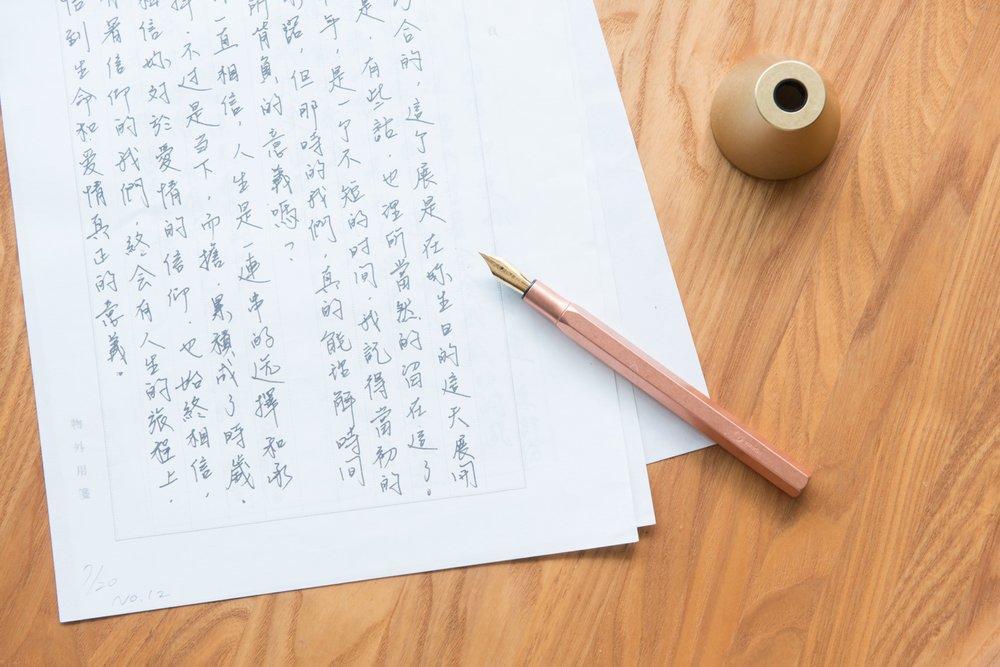 合的，這个展是在妳生日的這天展開
是，有些話，也理所當然的留在這了。
年，是一个不短的时间，我記得當初的
，但那時的我們，真的能理解時間
所背負的意義嗎？
一直相信，人生是一連串的选擇和承
擇，不过是当下，而擔，累積成了時歲。
信妳对於愛情的信仰，也始終相信，
著信仰的我們，終会有人生的旅程上，
到生命和爱情真正的意義。
物外用箋
7/20
NO.12